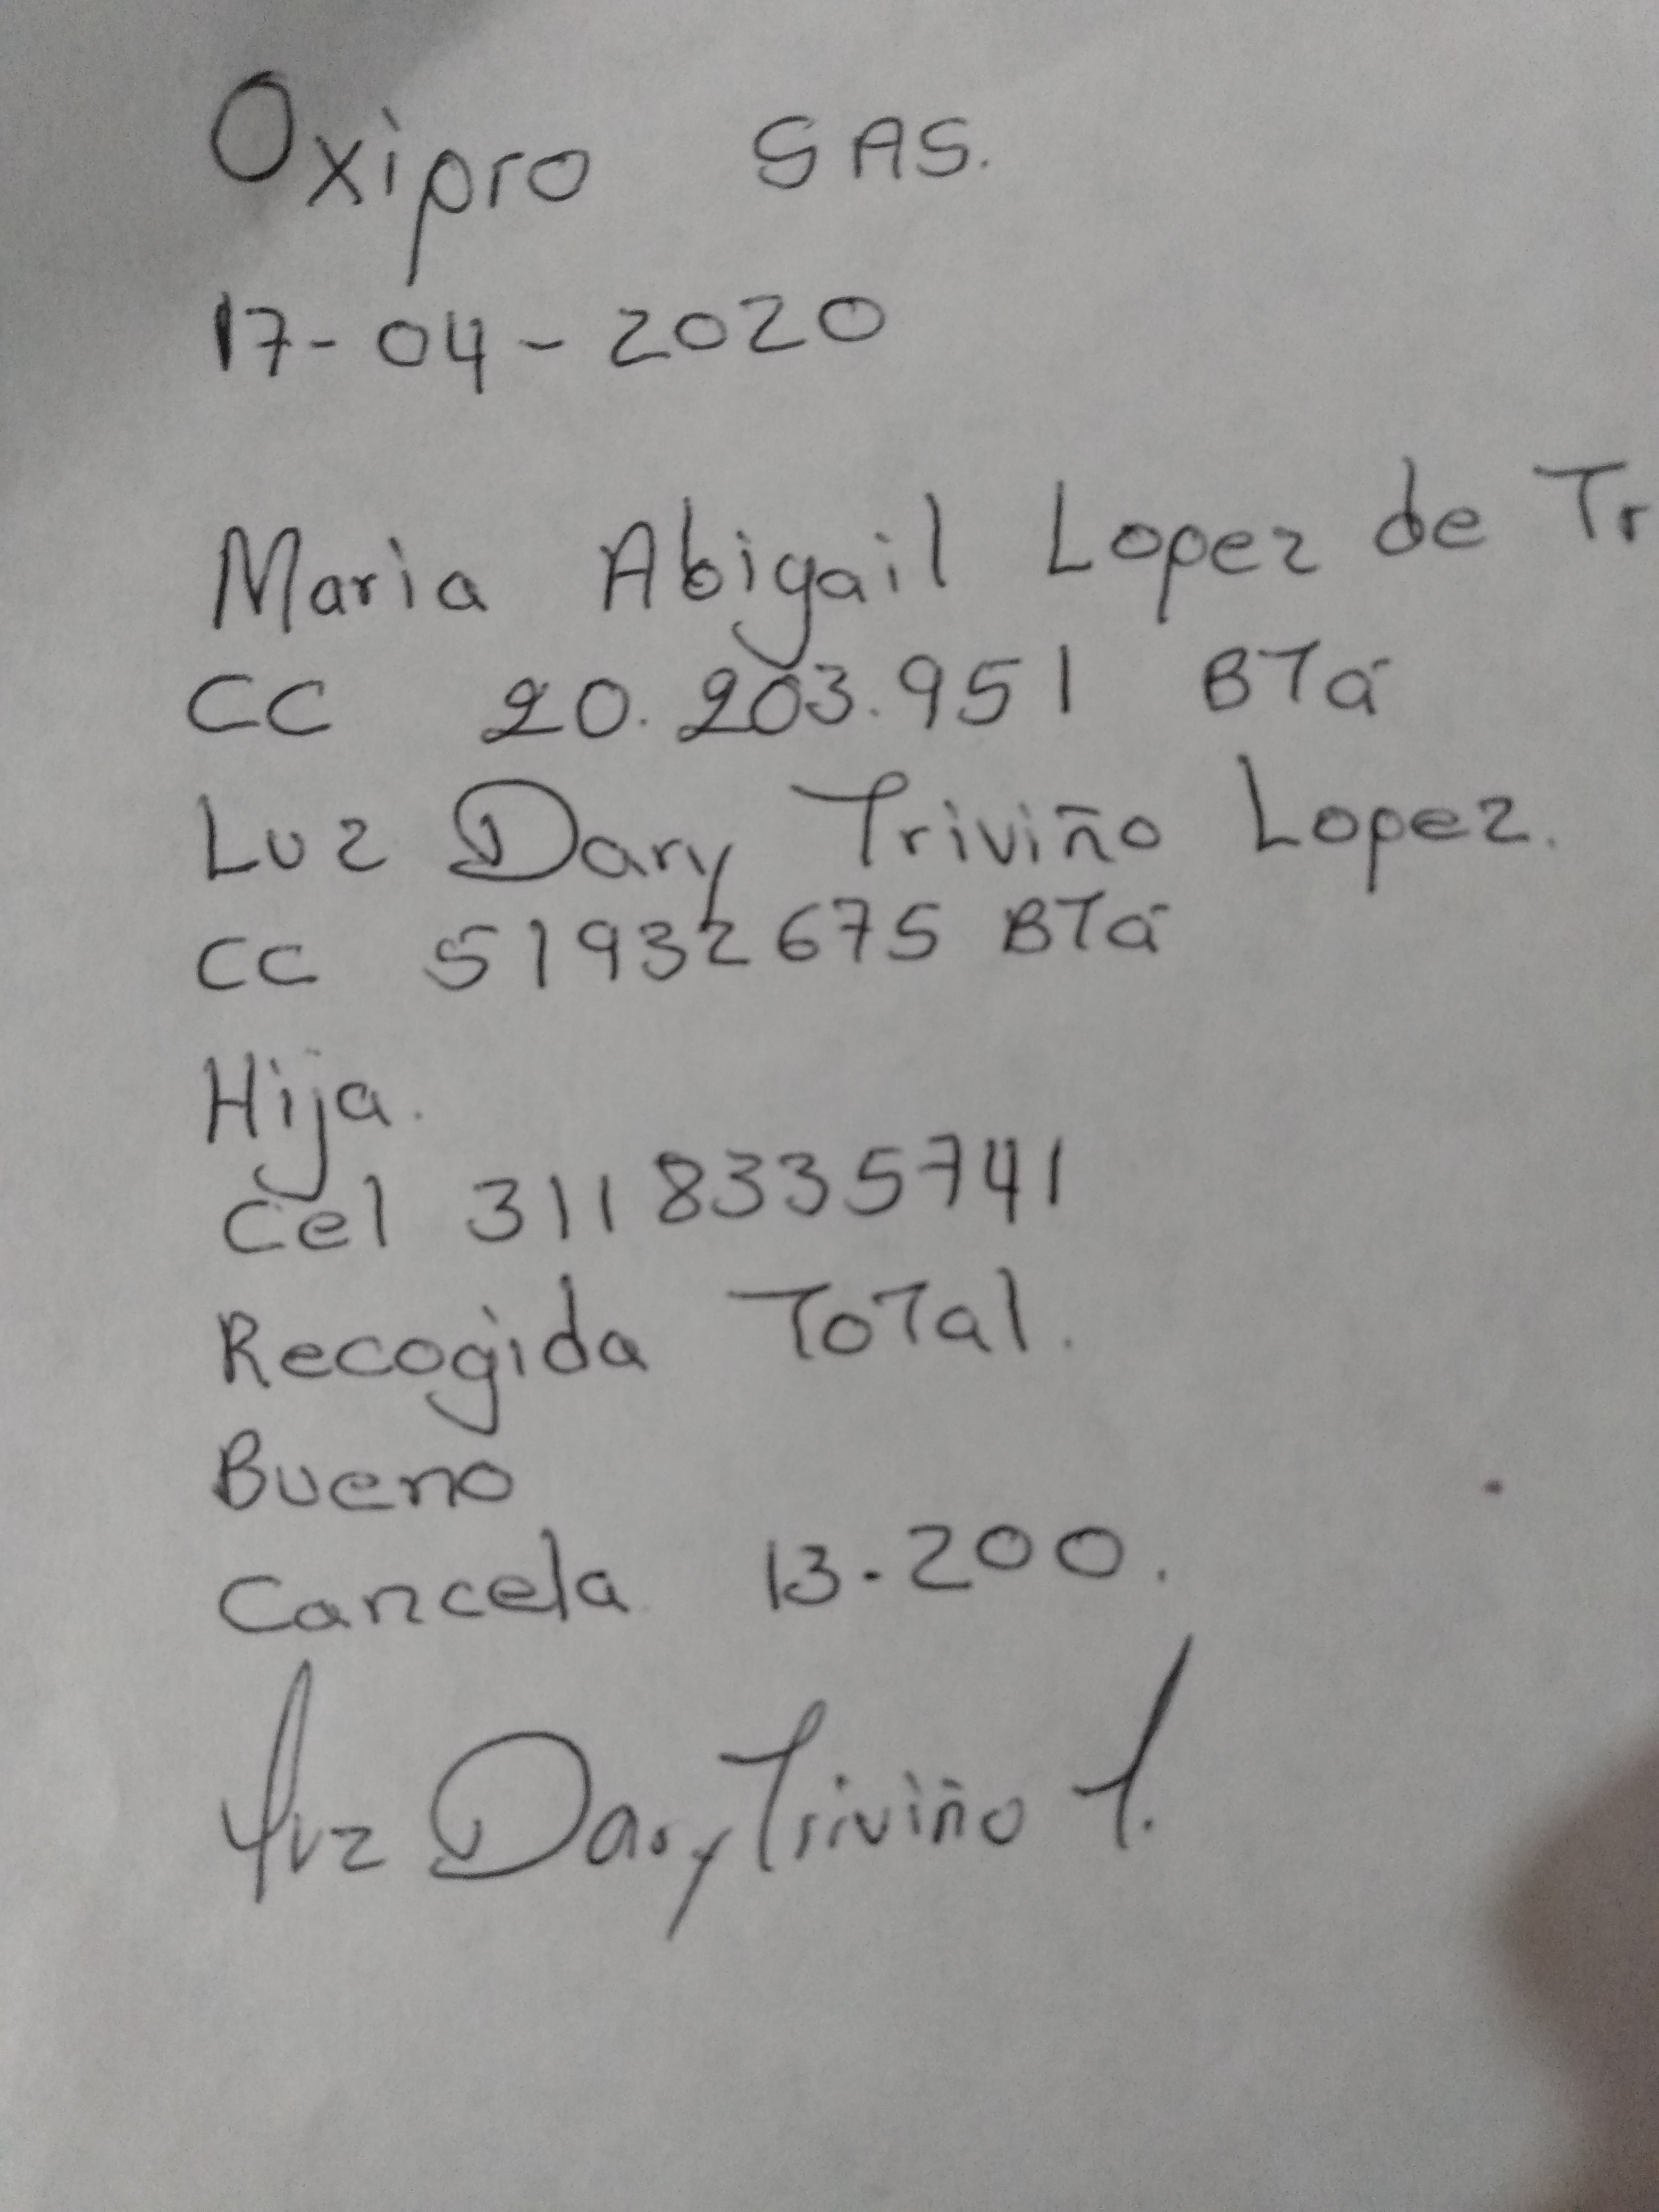 Oxipro SAS.
17-04-2020
Maria Abigail Lopez de Tr
CC 20.203.951 BTá
Luz Dary Triviño Lopez.
CC 51932675 BTá
Hija.
Cel 3118335741
Recogida ToTal.
Bueno
Cancela 13.200.
Luz Dary Triviño L.